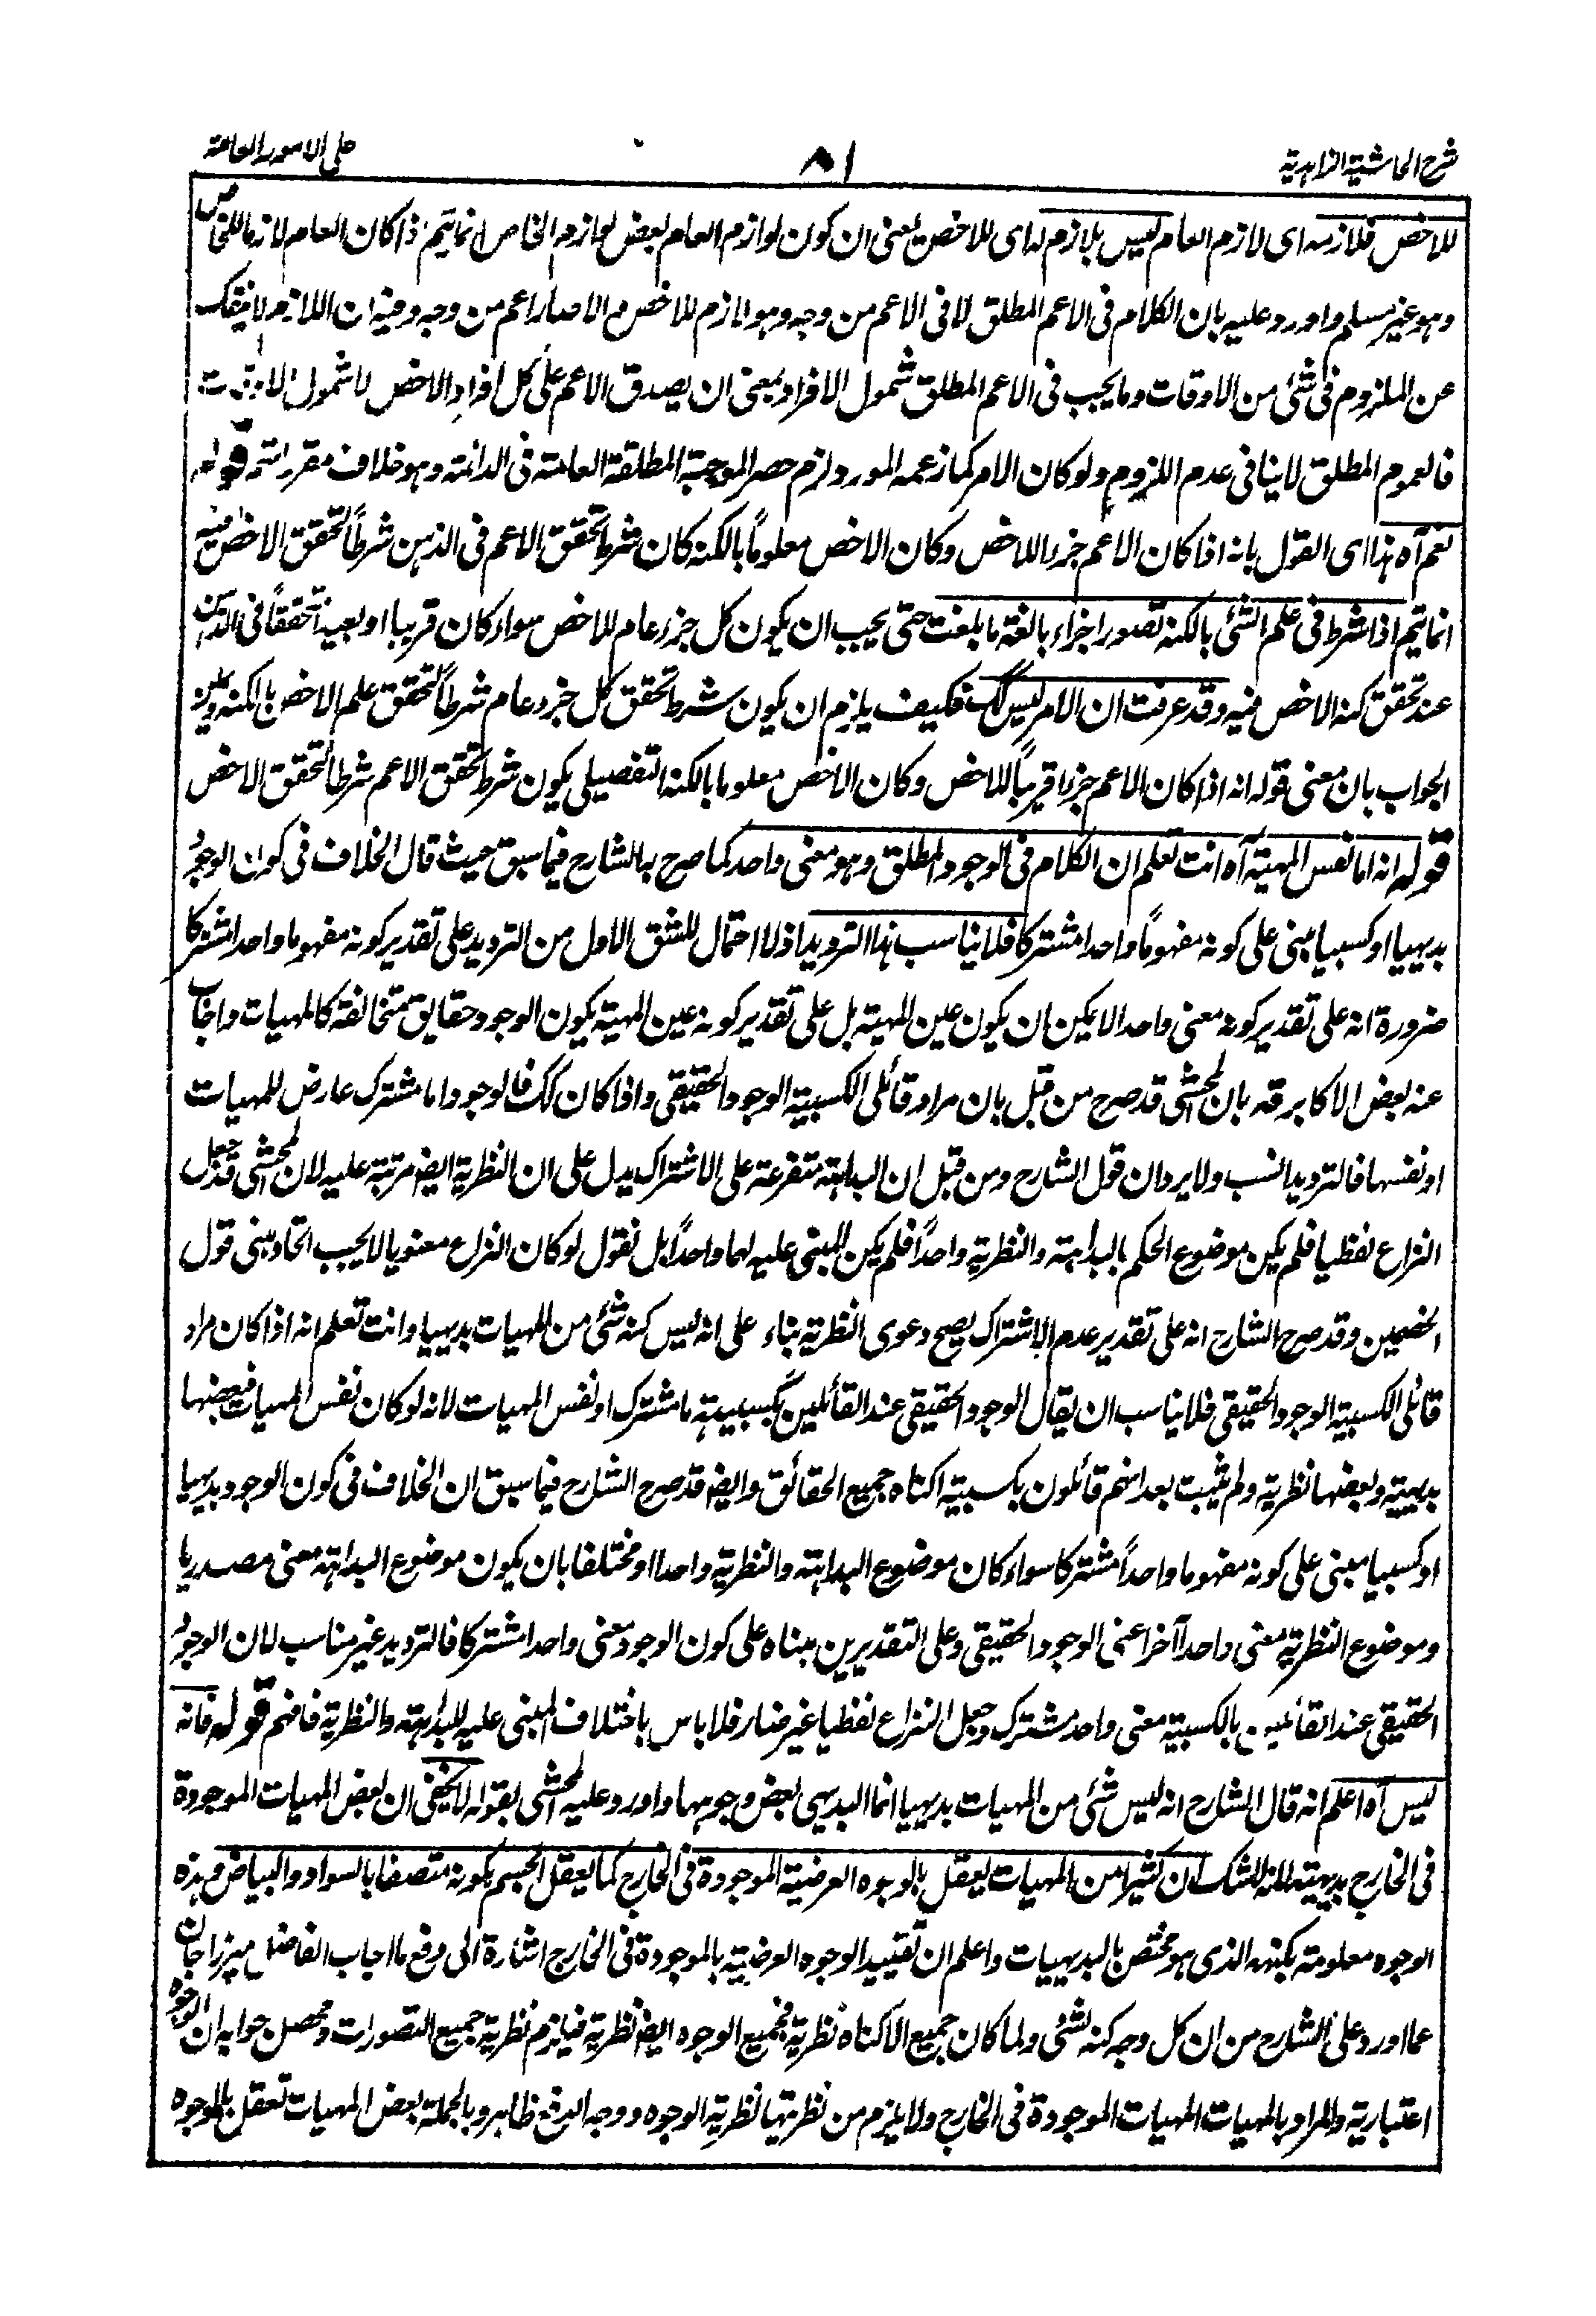 شرح الحاشية الزاهدية
٨١
على الامور العامة
للاخص فلازمه اى لازم العام ليس بلازم له اى للاخص يعنى ان كون لوازم العام بعض لوازم الخاص انما يتم اذا كان العام لازما للخاص
وهو غير مسلم واورد عليه بان الكلام فى الاعم المطلق لا فى الاعم من وجه وهو لازم للاخص والا صار اعم من وجه وفيه ان اللازم لا ينفك
عن الملزوم فى شئ من الاوقات وما يجب فى الاعم المطلق شمول الافراد بمعنى ان يصدق الاعم على كل افراد الاخص لا شمول الاوقات
فالعموم المطلق لا ينافى عدم اللزوم ولو كان الامر كما زعمه المورد لزم حصر الموجبة المطلقة العامة فى الدائمة وهو خلاف مقرراتهم قوله
نعم آه هذا اى القول بانه اذا كان الاعم جزءا للاخص وكان الاخص معلوماً بالكنه كان شرط تحقق الاعم فى الذهن شرطاً لتحقق الاخص فيه
انما يتم اذا شرط فى علم الشئ بالكنه تصور اجزاءه بالغة ما بلغت حتى يجب ان يكون كل جزء عام للاخص سواء كان قريبا او بعيدا متحققاً فى الذهن
عند تحقق كنه الاخص فيه وقد عرفت ان الامر ليس كك فكيف يلزم ان يكون شرط تحقق كل جزء عام شرطاً لتحقق علم الاخص بالكنه
الجواب بان معنى قوله انه اذا كان الاعم جزءا قريباً للاخص وكان الاخص معلوما بالكنه التفصيلى يكون شرط تحقق الاعم شرطا لتحقق الاخص
قوله انه اما نفس المهية آه انت تعلم ان الكلام فى الوجود المطلق وهو معنى واحد كما صرح به الشارح فيما سبق حيث قال الخلاف فى كون الوجود
بديهيا او كسبيا مبنى على كونه مفهوماً واحدا مشتركا فلا يناسب هذا الترديد اذ لا احتمال للشق الاول من الترديد على تقدير كونه مفهوما واحدا مشتركا
ضرورة انه على تقدير كونه معنى واحدا لا يمكن ان يكون عين المهية بل على تقدير كونه عين المهية يكون الوجود حقايق متخالفة كالمهيات واجاب
عنه بعض الاكابر قده بان المحشى قد صرح من قبل بان مراد قائلى الكسبية الوجود الحقيقى واذا كان كك فالوجود اما مشترك عارض للمهيات
او نفسها فالترديد انسب ولا يرد ان قول الشارح ومن قبل ان البداهة متفرعة على الاشتراك يدل على ان النظرية ايضا مرتبة عليه لان المحشى قد جعل
النزاع لفظيا فلم يكن موضوع الحكم بالبداهة والنظرية واحداً فلم يكن المبنى عليه لهما واحداً بل نقول لو كان النزاع معنويا لا يجب اتحاد مبنى قول
الخصمين وقد صرح الشارح انه على تقدير عدم الاشتراك يصح دعوى النظرية بناء على انه ليس كنه شئ من المهيات بديهيا وانت تعلم انه اذا كان مراد
قائلى الكسبية الوجود الحقيقى فلا يناسب ان يقال الوجود الحقيقى عند القائلين بكسبيته ما مشترك او نفس المهيات لانه لو كان نفس المهيات فبعضها
بديهية وبعضها نظرية ولم يثبت بعد انهم قائلون بكسبية اكتناه جميع الحقائق وايضا قد صرح الشارح فيما سبق ان الخلاف فى كون الوجود بديهيا
او كسبيا مبنى على كونه مفهوما واحداً مشتركا سواء كان موضوع البداهة والنظرية واحدا او مختلفا بان يكون موضوع البداهة معنى مصدريا
وموضوع النظرية معنى واحداً آخر اعنى الوجود الحقيقى وعلى التقديرين مبناه على كون الوجود معنى واحدا مشتركا فالترديد غير مناسب لان الوجود
الحقيقى عند القائلين بالكسبية معنى واحد مشترك وجعل النزاع لفظيا غير ضار فلا باس باختلاف المبنى عليه للبداهة والنظرية فافهم قوله فانه
ليس آه اعلم انه قال الشارح انه ليس شئ من المهيات بديهيا انما البديهى بعض وجوهها واورد عليه المحشى بقوله لا يخفى ان بعض المهيات الموجودة
فى الخارج بديهية لانه لا شك ان كثيرا من المهيات يعقل بالوجوه العرضية الموجودة فى الخارج كما يعقل الجسم بكونه متصفا بالسواد والبياض وهذه
الوجوه معلومة بكنهه الذى هو مختص بالبديهيات واعلم ان تقييد الوجوه العرضية بالموجودة فى الخارج اشارة الى دفع ما اجاب الفاضل ميرزا جان
عما اورد على الشارح من ان كل وجه كنه لشئ ولما كان جميع الاكناه نظرية فجميع الوجوه ايضا نظرية فيلزم نظرية جميع التصورات ومحصل جوابه ان الوجوه
اعتبارية والمراد بالمهيات المهيات الموجودة فى الخارج ولا يلزم من نظريتها نظرية الوجوه ووجه الدفع ظاهر وبالجملة بعض المهيات تعقل بالوجوه